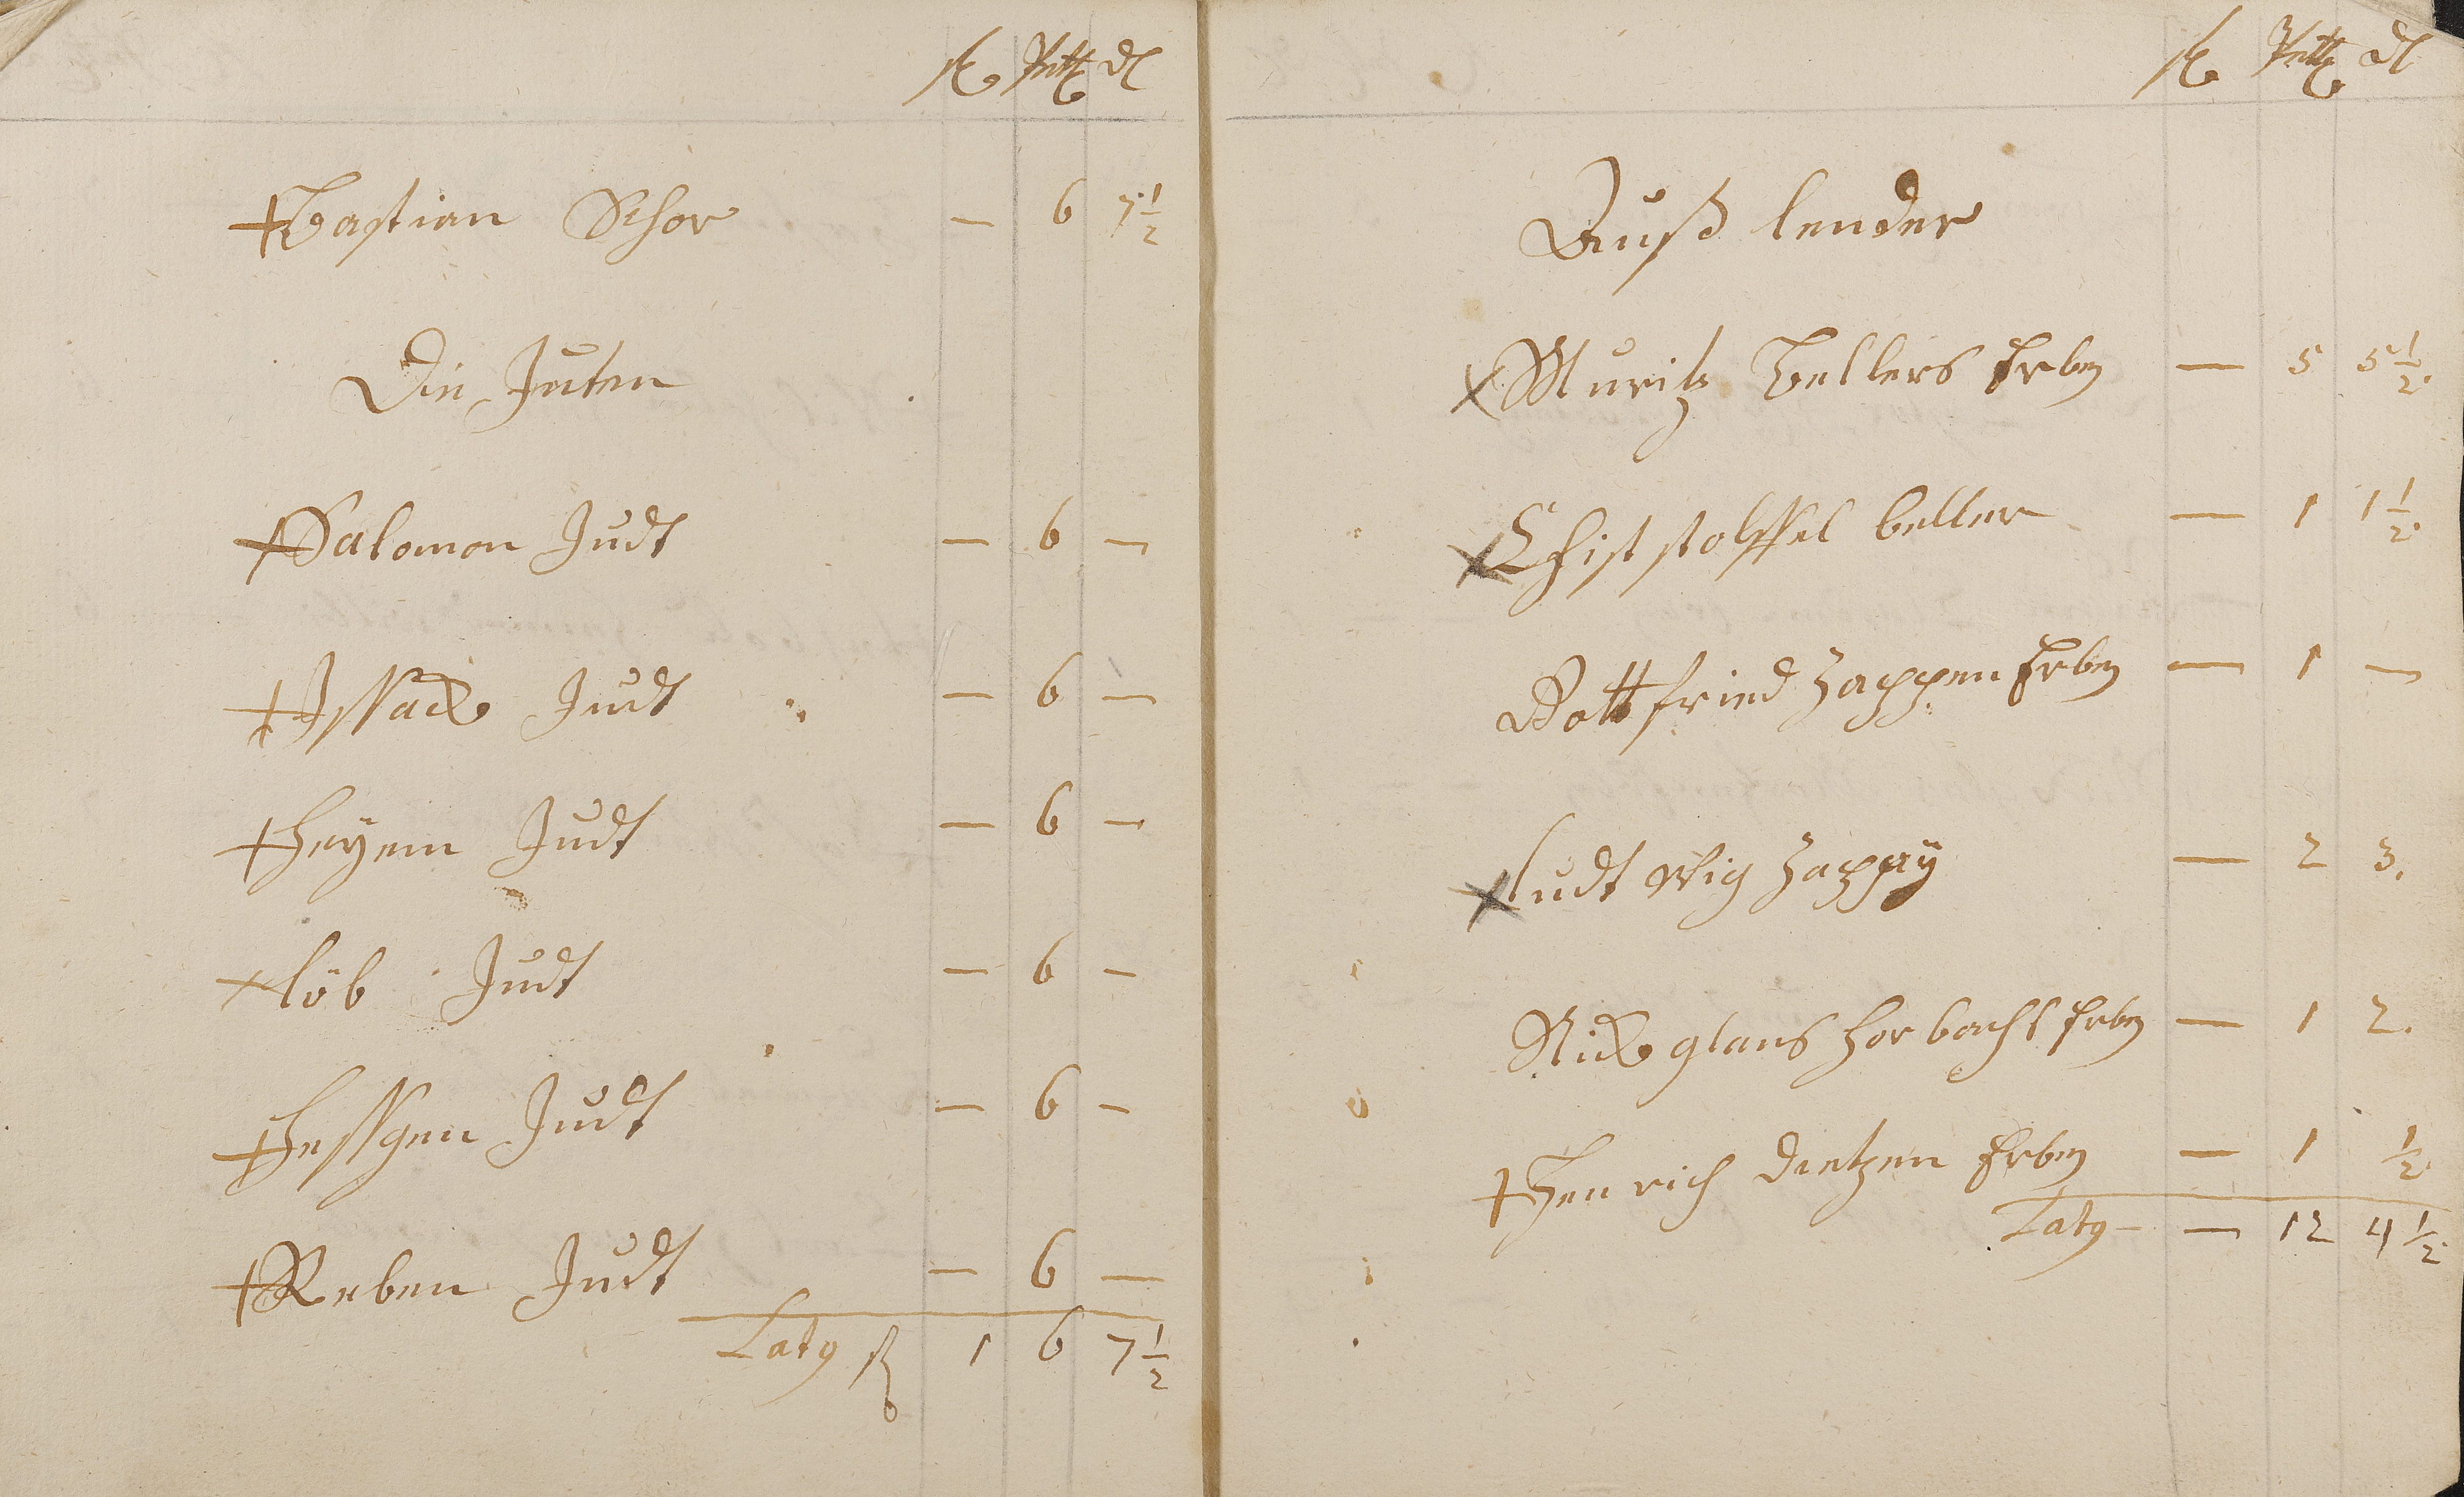 fl Batz dl
Bastian Schor — 6 7 1/2
Die Juten
Salomon Judt — 6 —
Issack Judt — 6 —
Heyem Judt — 6 —
löb Judt — 6 —
Hessgen Judt — 6 —
Reben Judt — 6 —
Latg fl 1 6 7 1/2
fl Batz dl
Auß lender
Muritz Bellers Erben — 5 5 1/2.
Christstoffel beller — 1 1 1/2.
Gottfried Zappen Erben — 1 —
ludtwig Zappy — 2 3.
Nickglaus Horbachs Erben — 1 2.
Henrich Dietzen Erben — 1 1/2
Latg — — 12 4 1/2